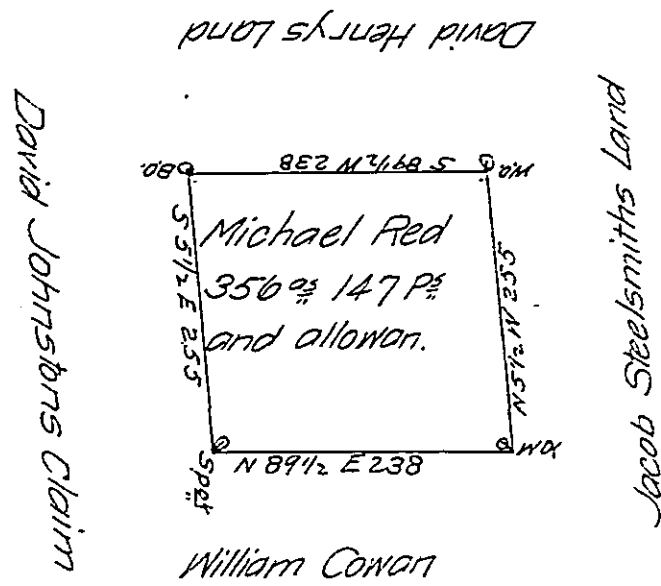 David Henrys Land
David Johnstons Claim
Jacob Steelsmiths Land
B.O.
S 89½ W 238
W.O.
S 5½ E 255
Michael Red
356 as 147 Ps
and allowan.
N 5½ W 255
N 89½ E 238
William Cowan